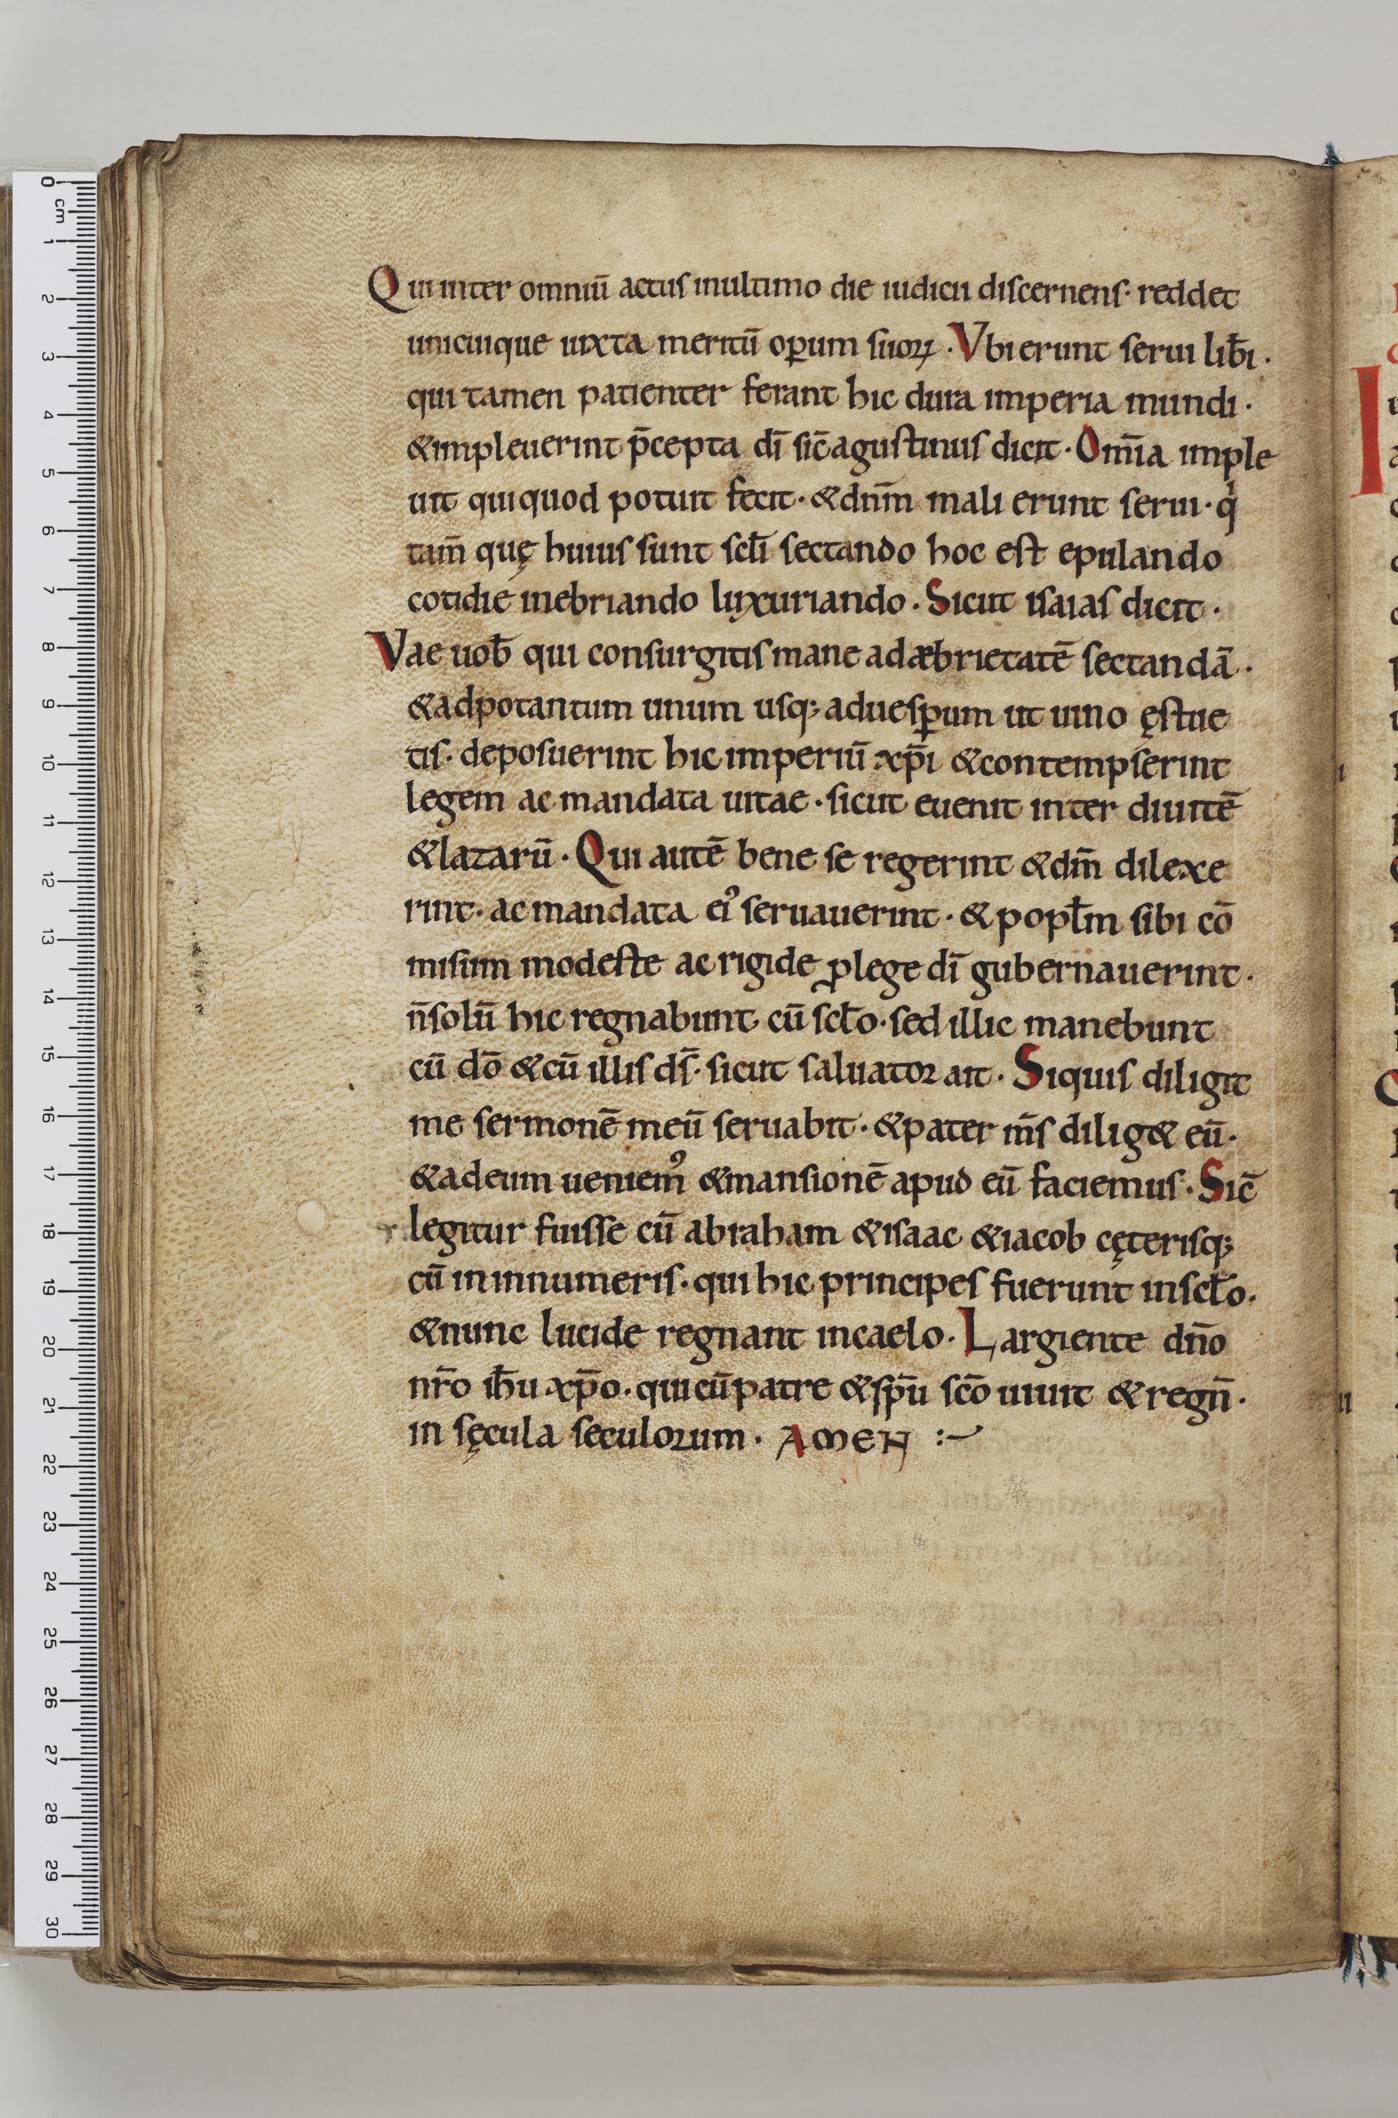 Qui inter omniū actus inultimo die iudicii discernens· reddet
unicuique iuxta meritū oꝑum suoꝝ· Vbi erunt serui lib̄i·
qui tamen patienter ferant hic dura imperia mundi·
&impleuerint p̄cepta dī sic̄ agustinus dicit· Om̄ia imple
uit qui quod potuit fecit· &dn̄m mali erunt serui· qͥ
tam̄ quę huius sunt scl̄i sectando hoc est epulando
cotidie inebriando luxuriando· Sicut isaias dicit·
Vae uob̄ qui consurgitis mane ad æbrietatē sectandā·
&adpotantum unum usq; aduesꝑum ut uino ęstue
tis· deposuerint hic imperiū xp̄i &contempserint
legem ac mandata uitae· sicut euenit inter diuitē
&lazarū· Qui autē bene se regerint &dm̄ dilexe
rint· ac mandata eiꝰ seruauerint· & popl̄m sibi cō
misum modeste ac rigide ꝓ lege dī gubernauerint·
n̄ solū hic regnabunt cū scl̄o· sed illic manebunt
cū dō &cū illis ds̄· sicut saluator ait· Siquis diligit
me sermonē meū seruabit· &pater m̄s dilig& eū·
&adeum ueniemꝰ &mansionē apud eū faciemus· Sic̄
legitur fuisse cū abraham &isaac &iacob cęterisq;
cū in innumeris· qui hic principes fuerunt inscl̄o·
&nunc lucide regnant incaelo· Largiente dn̄o
nr̄o ih̄u xp̄o· qui cū patre &sp̄u sc̄o uiuit &regn̄·
in sęcula seculorum· AMEN :~
0 cm 1 2 3 4 5 6 7 8 9 10 11 12 13 14 15 16 17 18 19 20 21 22 23 24 25 26 27 28 29 30